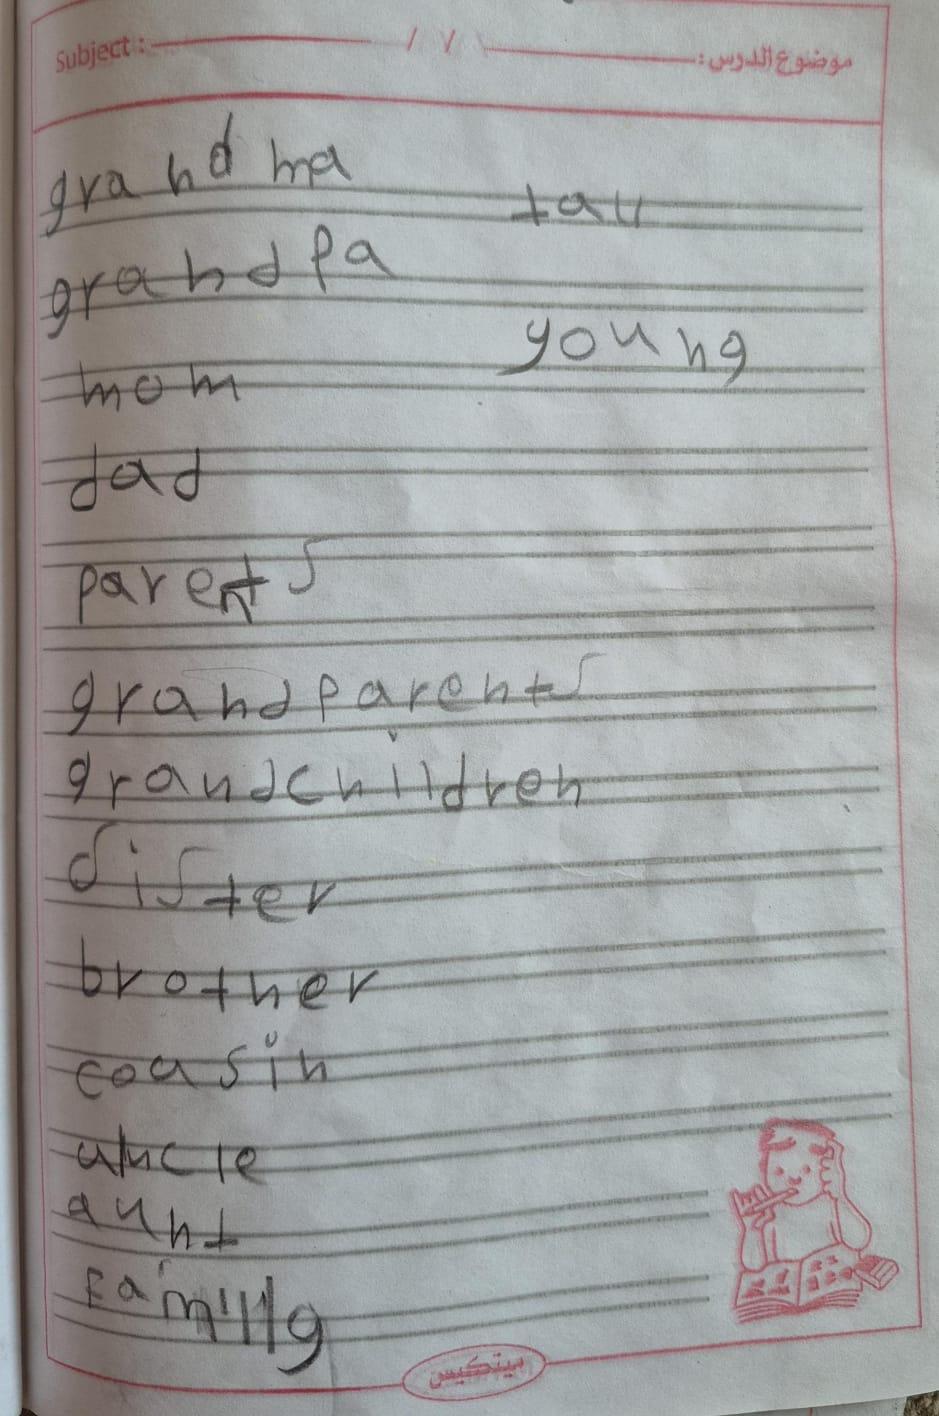 Subject: / / موضوع الدرس:
grandma
tall
grandpa
young
mom
dad
parents
grandparents
grandchildren
sister
brother
cousin
uncle
aunt
بيتكيس